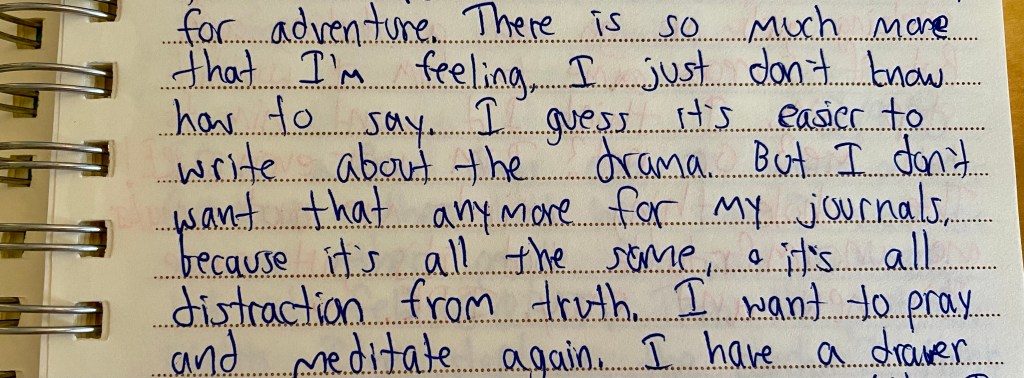 for adventure. There is so much more
that I'm feeling, I just don't know
how to say. I guess it's easier to
write about the drama. But I don't
want that anymore for my journals,
because it's all the same, & it's all
distraction from truth. I want to pray
and meditate again. I have a drawer